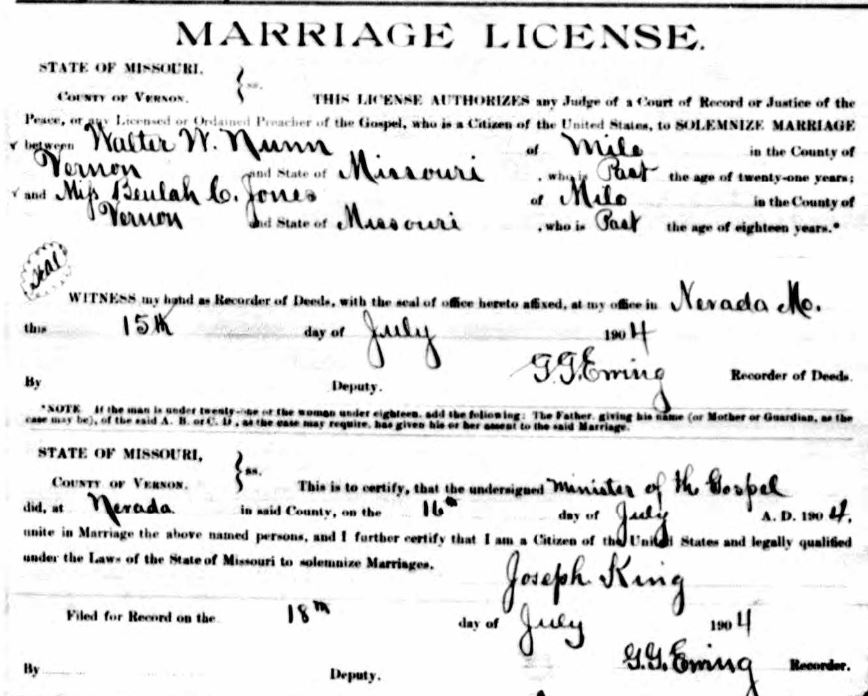 MARRIAGE LICENSE.
STATE OF MISSOURI,
COUNTY OF VERNON. } ss. THIS LICENSE AUTHORIZES any Judge of a Court of Record or Justice of the
Peace, or any Licensed or Ordained Preacher of the Gospel, who is a Citizen of the United States, to SOLEMNIZE MARRIAGE
between Walter W. Nunn of Milo in the County of
Vernon and State of Missouri, who is Past the age of twenty-one years;
and Miss Beulah C. Jones of Milo in the County of
Vernon and State of Missouri, who is Past the age of eighteen years.*
Seal
WITNESS my hand as Recorder of Deeds, with the seal of office hereto affixed, at my office in Nevada Mo.
this 15th day of July 1904
G.G. Ewing Recorder of Deeds.
By Deputy.
*NOTE If the man is under twenty-one or the woman under eighteen, add the following: The Father, giving his name (or Mother or Guardian, as the
case may be), of the said A. B. or C. D., as the case may require, has given his or her assent to the said Marriage.
STATE OF MISSOURI,
COUNTY OF VERNON. } ss. This is to certify, that the undersigned Minister of the Gospel
did, at Nevada in said County, on the 16th day of July A. D. 1904,
unite in Marriage the above named persons, and I further certify that I am a Citizen of the United States and legally qualified
under the Laws of the State of Missouri to solemnize Marriages.
Joseph King
Filed for Record on the 18th day of July 1904
G.G. Ewing Recorder.
By Deputy.